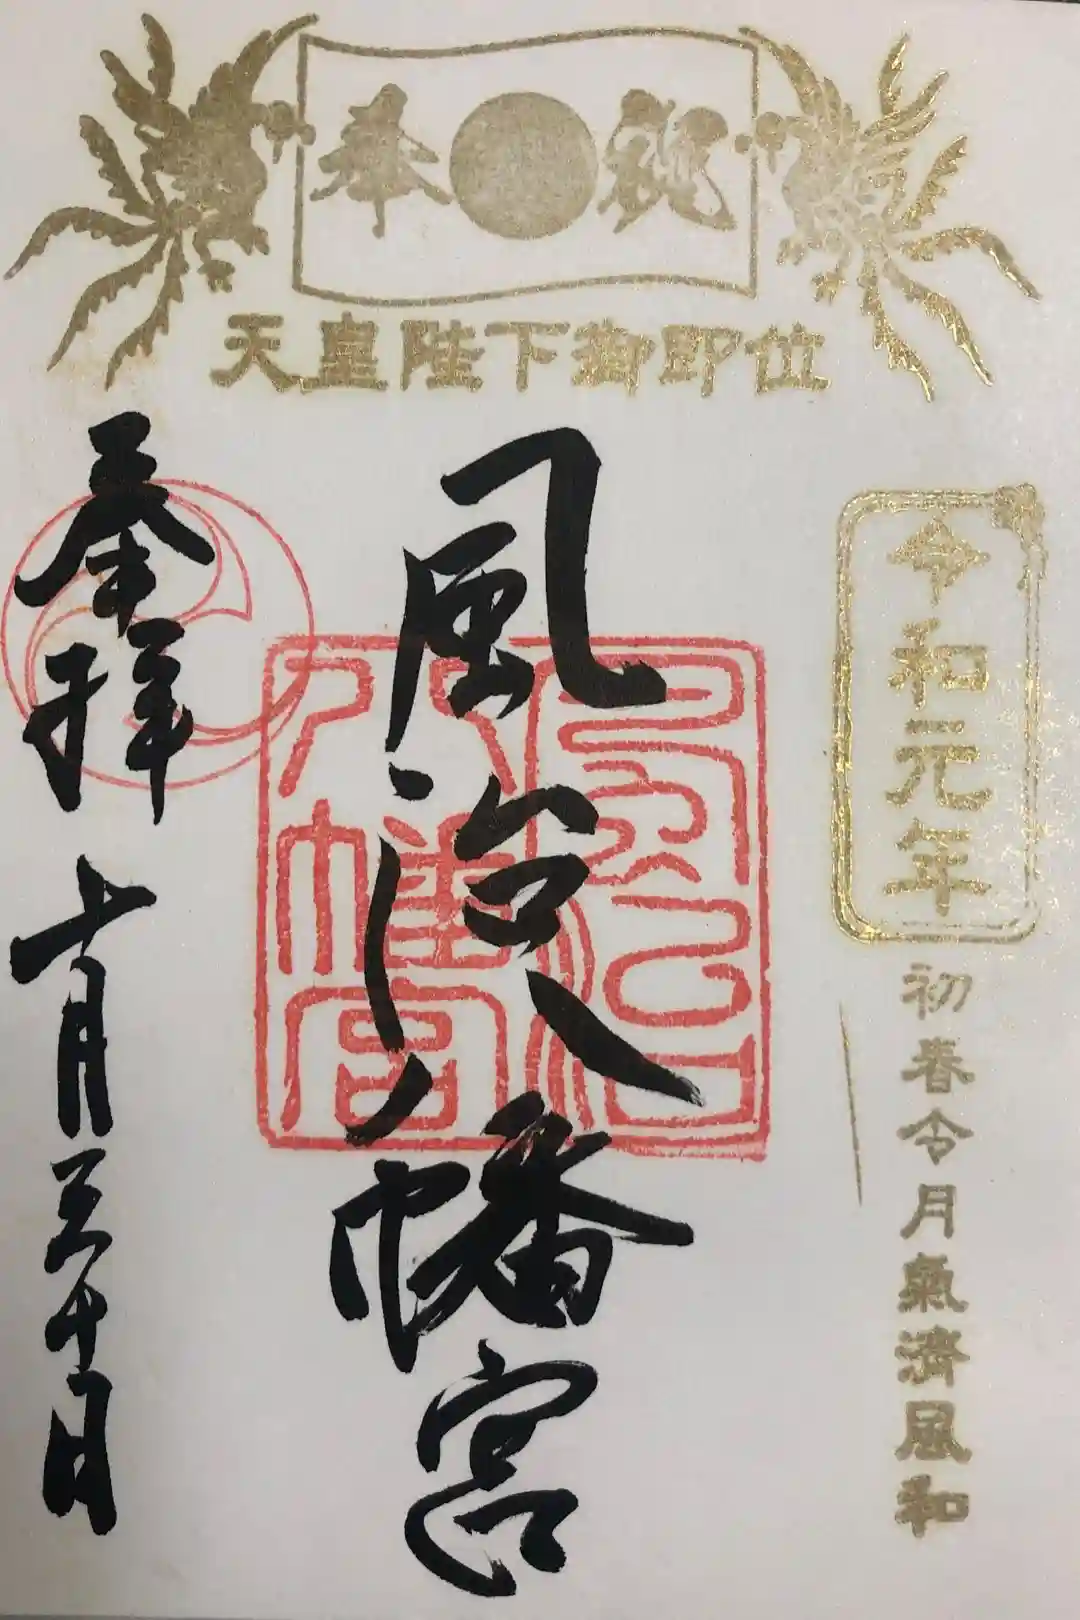 奉祝
天皇陛下御即位
令和元年
初春令月氣濟風和
風治八幡宮
風治八幡宮
奉拝
十月三十日